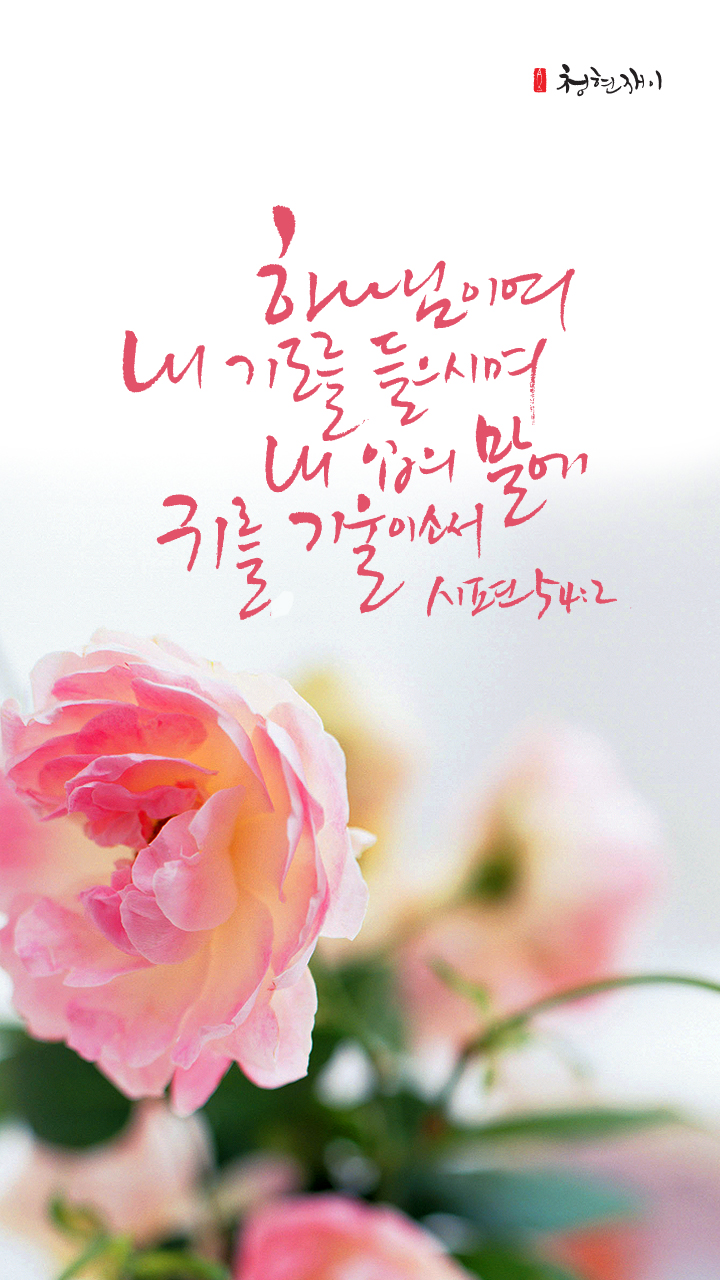 청현재이
하나님이여
내 기도를 들으시며
내 입의 말에
귀를 기울이소서
시편 54:2